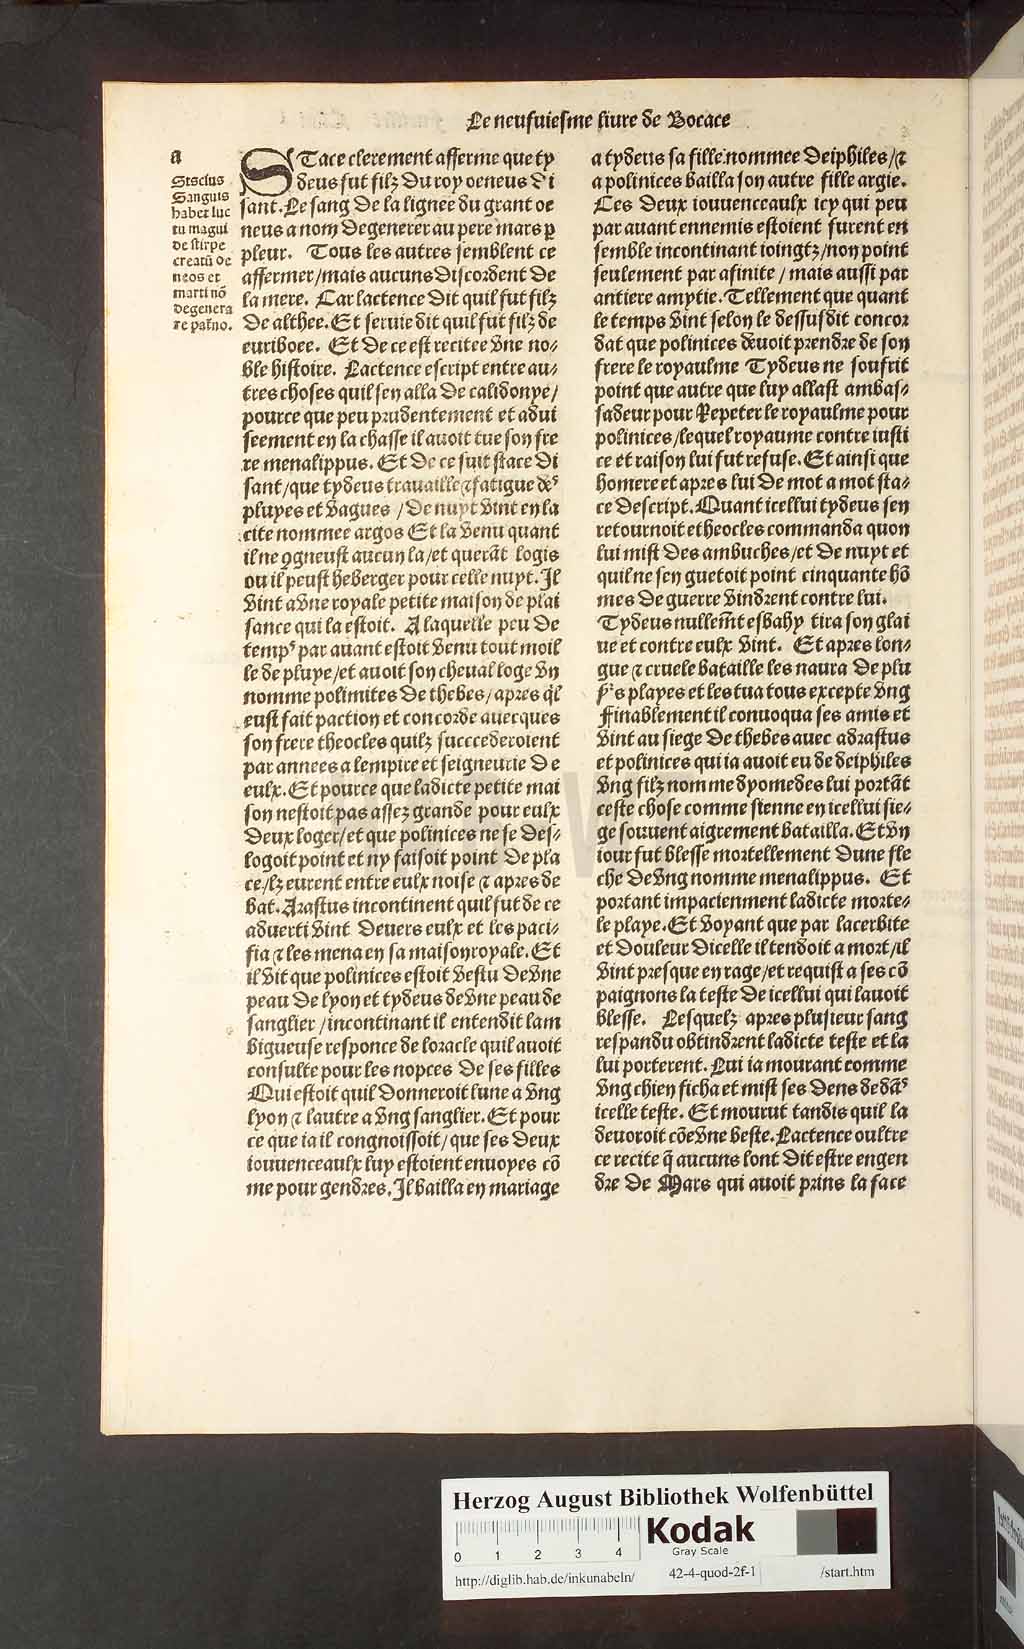 Le neufuiesme liure de Bocace
a
Stacius
Sanguis
habet luc
tu magni
de stirpe
creatū oe
neos et
marti nō
degenera
re pat̄no.
STace clerement afferme que ty
deus fut filz du roy oeneus di
sant. Le sang de la lignee du grant oe
neus a non degenerer au pere mars p
pleur. Tous les autres semblent ce
affermer/mais aucuns discordent de
la mere. Car lactence dit quil fut filz
de althee. Et seruie dit quil fut filz de
euriboee. Et de ce est recitee vne no⸗
ble histoire. Lactence escript entre au⸗
tres choses quil sen alla de calidonye/
pource que peu prudentement et adui
seement en la chasse il auoit tue son fre
re menalippus. Et de ce suit stace di
sant/que tydeus trauaille ⁊ fatigue deꝰ
pluyes et vagues /de nuyt vint en la
cite nommee argos Et la venu quant
il ne ꝯgneust aucun la/et querāt logis
ou il peust heberger pour celle nuyt. Il
vint a vne royale petite maison de plai
sance qui la estoit. A laquelle peu de
tempꝰ par auant estoit venu tout moil
le de pluye/et auoit son cheual loge vn
nomme polimites de thebes/apres q̄l
eust fait paction et concorde auecques
son frere theocles quilz succcederoient
par annees a lempire et seigneurie de
eulx. Et pource que ladicte petite mai
son nestoit pas assez grande pour eulx
deux loger/et que polinices ne se des⸗
logoit point et ny faisoit point de pla
ce/lz eurent entre eulx noise ⁊ apres de
bat. Arastus incontinent quil fut de ce
aduerti vint deuers eulx et les paci⸗
fia ⁊ les mena en sa maison royale. Et
il vit que polinices estoit vestu de vne
peau de lyon et tydeus de vne peau de
sanglier /incontinant il entendit lam
bigueuse responce de loracle quil auoit
consulte pour les nopces de ses filles
Qui estoit quil donneroit lune a vng
lyon ⁊ lautre a vng sanglier. Et pour
ce que ia il congnoissoit/que ses deux
iouuenceaulx luy estoient enuoyes cō
me pour gendres. Il bailla en mariage
a tydeus sa fille nommee deiphiles/⁊
a polinices bailla son autre fille argie.
Ces deux iouuenceaulx icy qui peu
par auant ennemis estoient furent en
semble incontinant ioingtz/non point
seulement par afinite / mais aussi par
antiere amytie. Tellement que quant
le temps vint selon le dessusdit concor
dat que polinices deuoit prendre de son
frere le royaulme Tydeus ne soufrit
point que autre que luy allast ambas⸗
sadeur pour Repeter le royaulme pour
polinices/lequel royaume contre iusti
ce et raison lui fut refuse. Et ainsi que
homere et apres lui de mot a mot sta⸗
ce descript. Quant icellui tydeus sen
retournoit etheocles commanda quon
lui mist des ambuches/et de nuyt et
quil ne sen guetoit point cinquante hō
mes de guerre vindrent contre lui.
Tydeus nullem̄t esbahy tira son glai
ue et contre eulx vint. Et apres lon⸗
gue ⁊ cruele bataille les naura de plu
s playes et les tua tous excepte vng
Finablement il conuoqua ses amis et
vint au siege de thebes auec adrastus
et polinices qui ia auoit eu de deiphiles
vng filz nomme dyomedes lui portāt
ceste chose comme sienne en icellui sie⸗
ge souuent aigrement batailla. Et vn
iour fut blesse mortellement dune fle
che de vng nomme menalippus. Et
portant impacienment ladicte morte⸗
le playe. Et voyant que par lacerbite
et douleur dicelle il tendoit a mort/il
vint presque en rage/et requist a ses cō
paignons la teste de icellui qui lauoit
blesse. Lesquelz apres plusieur sang
respandu obtindrent ladicte teste et la
lui porterent. Lui ia mourant comme
vng chien ficha et mist ses dens dedāꝰ
icelle teste. Et mourut tandis quil la
deuoroit cōe vne beste. Lactence oultre
ce recite q̄ aucuns lont dit estre engen
dre de Mars qui auoit prins la face
Herzog August Bibliothek Wolfenbüttel
Kodak
Gray Scale
0 1 2 3 4
http://diglib.hab.de/inkunabeln/ 42-4-quod-2f-1 /start.htm